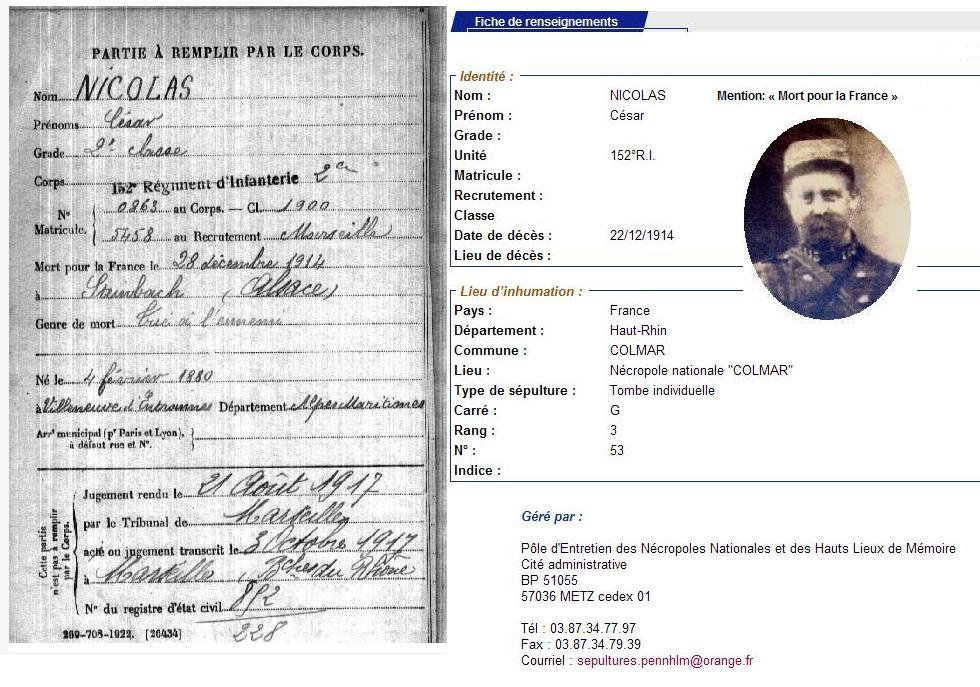 PARTIE À REMPLIR PAR LE CORPS.
Nom NICOLAS
Prénoms César
Grade 2e classe
Corps 152e Régiment d'Infanterie 2e
N° Matricule. { 0863 au Corps. — Cl. 1900
5458 au Recrutement Marseille
Mort pour la France le 28 décembre 1914
à Stainbach (Alsace)
Genre de mort Tué à l'ennemi
Né le 4 février 1880
à Villeneuve d'Entraunes Département Alpes Maritimes
Arrt municipal (pr Paris et Lyon), à défaut rue et N°. }
Cette partie n'est pas à remplir par le Corps.
Jugement rendu le 21 Août 1917
par le Tribunal de Marseille
acte ou jugement transcrit le 3 Octobre 1917
à Marseille, Bches du Rhône
N° du registre d'état civil 892
228
269-708-1922. [26434]
Fiche de renseignements
Identité :
Nom : NICOLAS Mention: « Mort pour la France »
Prénom : César
Grade :
Unité 152°R.I.
Matricule :
Recrutement :
Classe
Date de décès : 22/12/1914
Lieu de décès :
Lieu d'inhumation :
Pays : France
Département : Haut-Rhin
Commune : COLMAR
Lieu : Nécropole nationale "COLMAR"
Type de sépulture : Tombe individuelle
Carré : G
Rang : 3
N° : 53
Indice :
Géré par :
Pôle d'Entretien des Nécropoles Nationales et des Hauts Lieux de Mémoire
Cité administrative
BP 51055
57036 METZ cedex 01
Tél : 03.87.34.77.97
Fax : 03.87.34.79.39
Courriel : sepultures.pennhlm@orange.fr